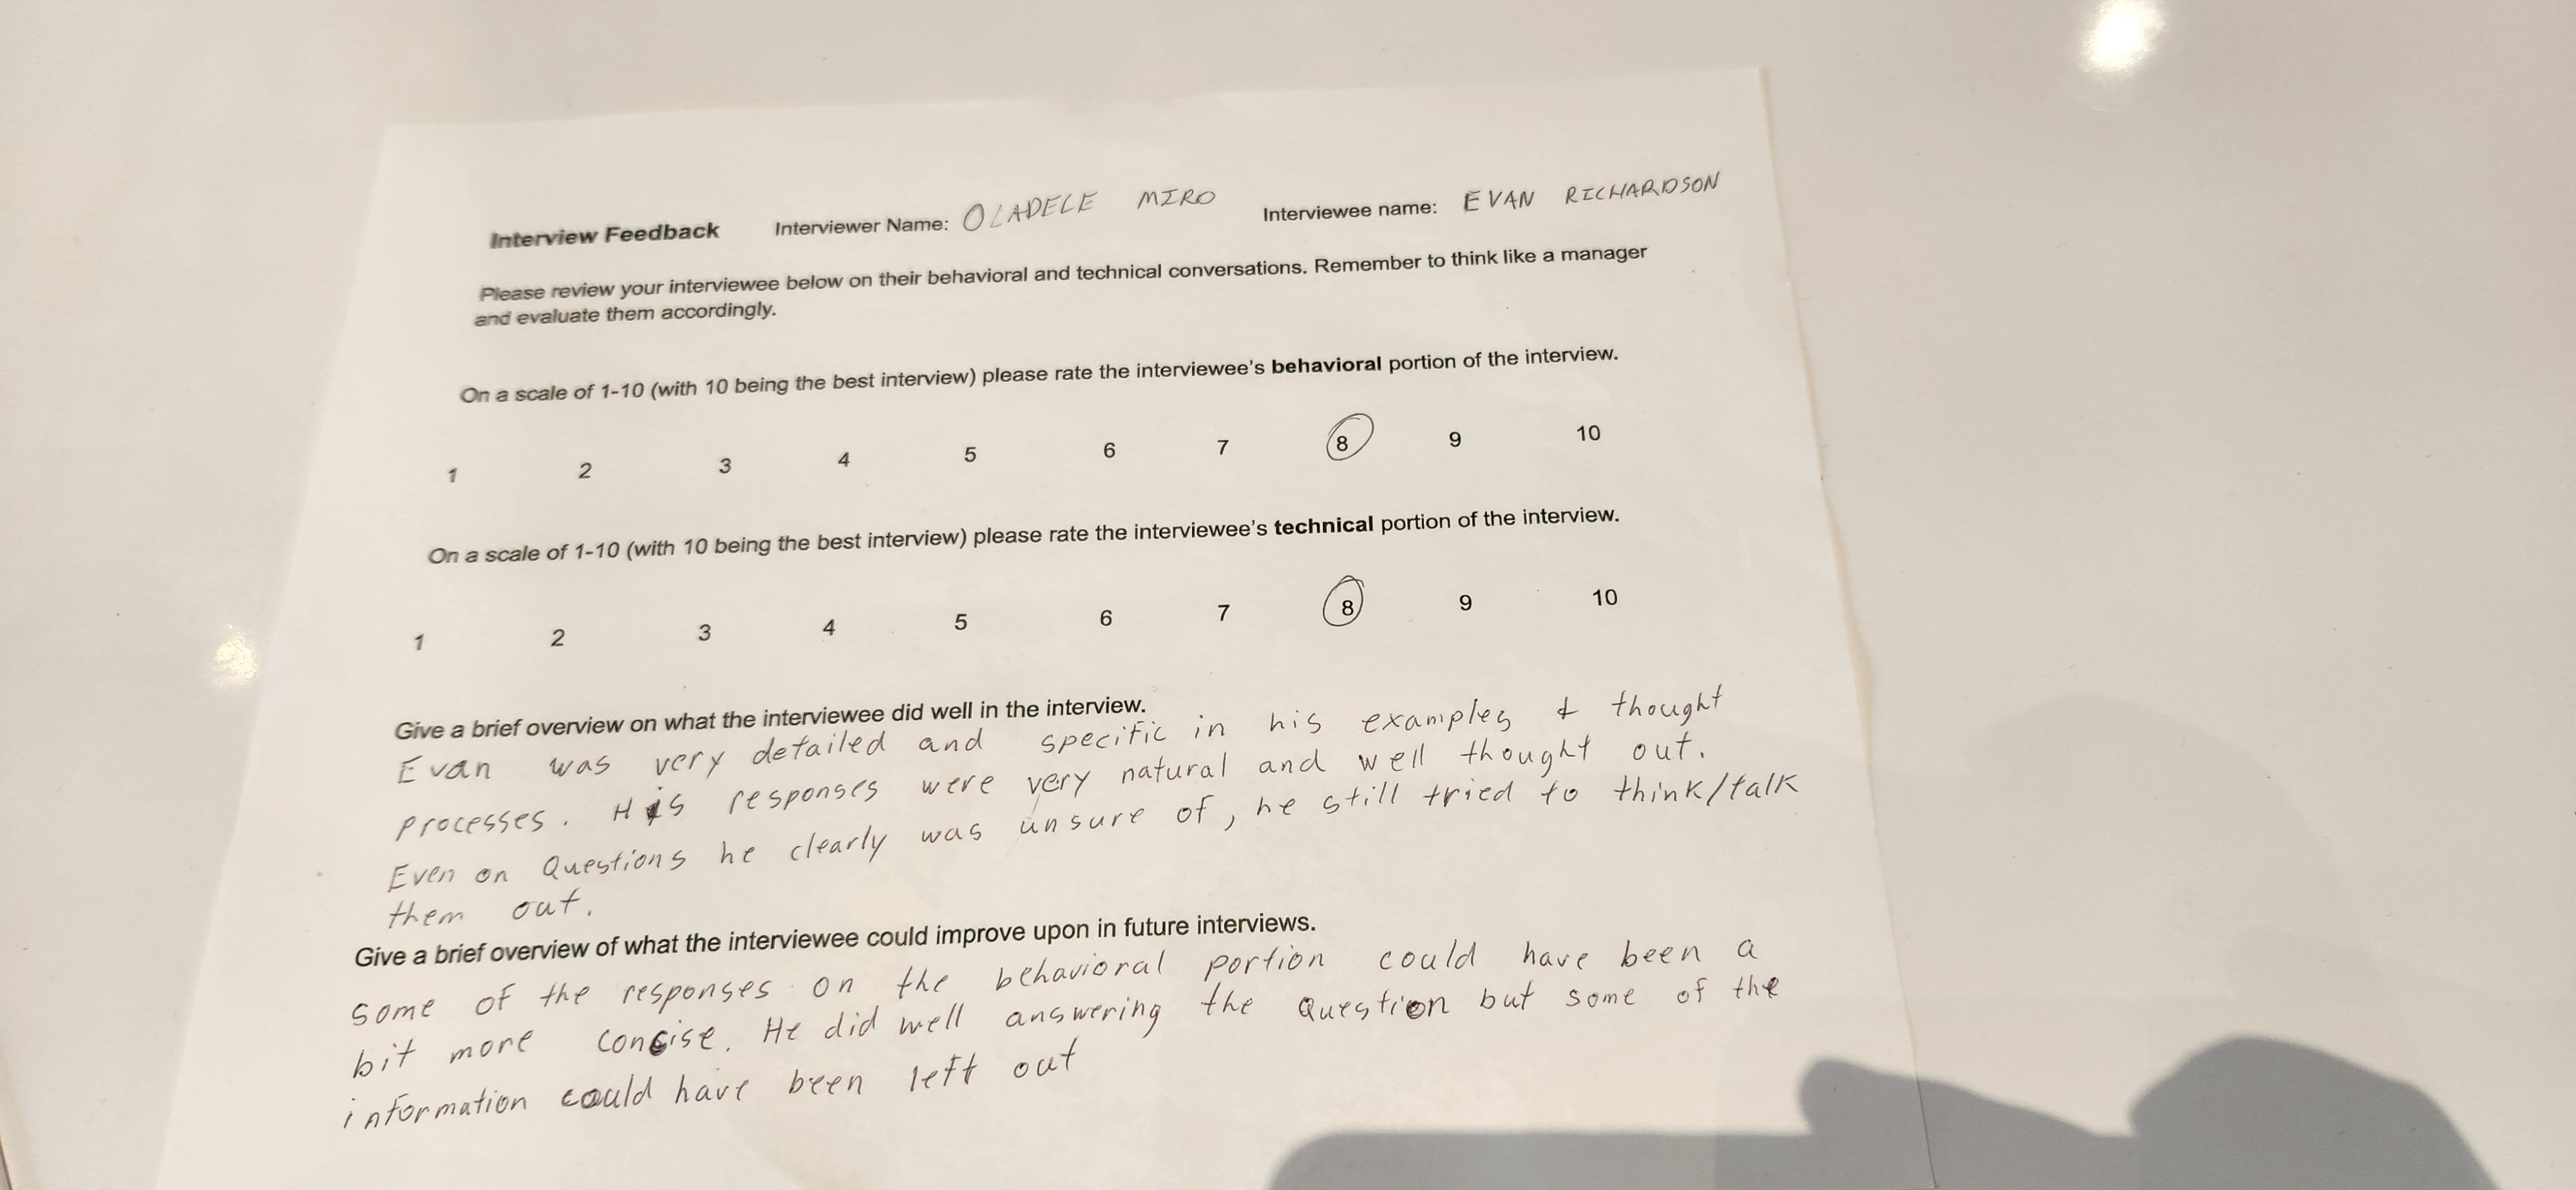 Interview Feedback Interviewer Name: OLADELE MIRO Interviewee name: EVAN RICHARDSON
Please review your interviewee below on their behavioral and technical conversations. Remember to think like a manager
and evaluate them accordingly.
On a scale of 1-10 (with 10 being the best interview) please rate the interviewee's behavioral portion of the interview.
1 2 3 4 5 6 7 8 9 10
On a scale of 1-10 (with 10 being the best interview) please rate the interviewee's technical portion of the interview.
1 2 3 4 5 6 7 8 9 10
Give a brief overview on what the interviewee did well in the interview.
Evan was very detailed and specific in his examples + thought
processes. His responses were very natural and well thought out.
Even on questions he clearly was unsure of, he still tried to think/talk
them out.
Give a brief overview of what the interviewee could improve upon in future interviews.
Some of the responses on the behavioral portion could have been a
bit more concise. He did well answering the question but some of the
information could have been left out